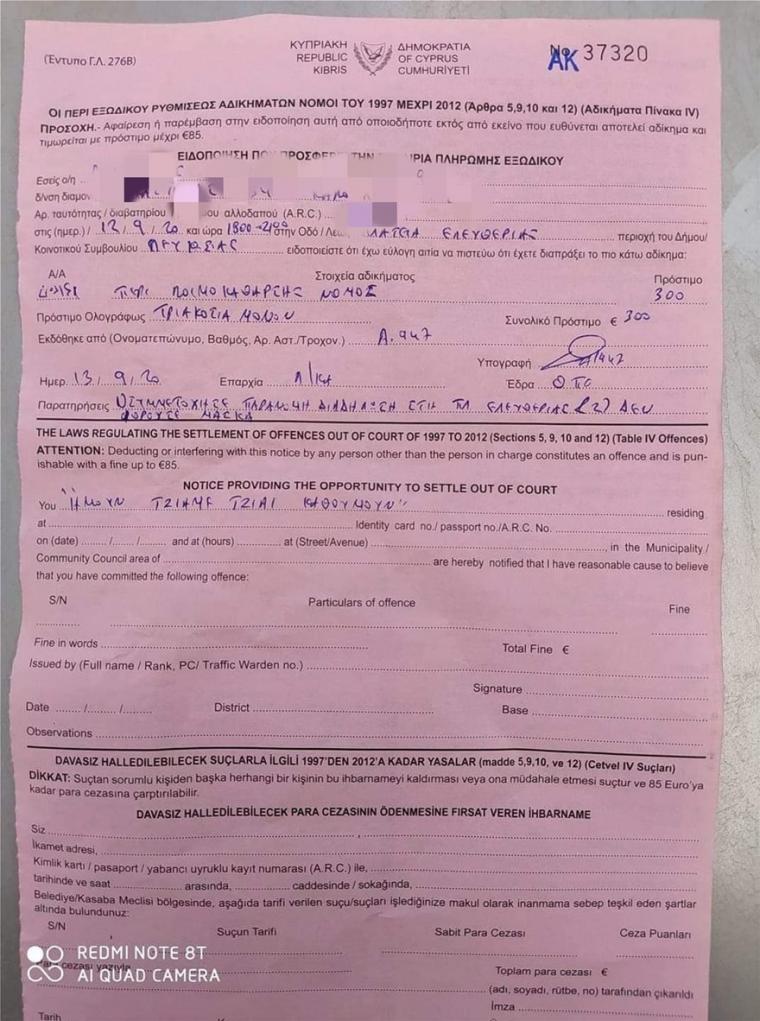 (Έντυπο Γ.Λ. 276Β)
ΚΥΠΡΙΑΚΗ ΔΗΜΟΚΡΑΤΙΑ
REPUBLIC OF CYPRUS
KIBRIS CUMHURİYETİ
No 37320
ΑΚ
ΟΙ ΠΕΡΙ ΕΞΩΔΙΚΟΥ ΡΥΘΜΙΣΕΩΣ ΑΔΙΚΗΜΑΤΩΝ ΝΟΜΟΙ ΤΟΥ 1997 ΜΕΧΡΙ 2012 (Άρθρα 5,9,10 και 12) (Αδικήματα Πίνακα IV)
ΠΡΟΣΟΧΗ.- Αφαίρεση ή παρέμβαση στην ειδοποίηση αυτή από οποιοδήποτε εκτός από εκείνο που ευθύνεται αποτελεί αδίκημα και
τιμωρείται με πρόστιμο μέχρι €85.
ΕΙΔΟΠΟΙΗΣΗ ΠΟΥ ΠΡΟΣΦΕΡ ΤΗΝ ΠΛΗΡΩΜΗΣ ΕΞΩΔΙΚΟΥ
Εσείς ο/η
δ/νση διαμον
Αρ. ταυτότητας / διαβατηρίου αλλοδαπού (A.R.C.)
στις (ημερ.) 12/9/20 και ώρα 1800-2100 στην Οδό / Λεω ΕΛΕΥΘΕΡΙΑΣ περιοχή του Δήμου/
Κοινοτικού Συμβουλίου ΛΕΥΚΩΣΙΑΣ ειδοποιείστε ότι έχω εύλογη αιτία να πιστεύω ότι έχετε διαπράξει το πιο κάτω αδίκημα:
Α/Α Στοιχεία αδικήματος Πρόστιμο
ΠΕΡΙ ΛΟΙΜΟΚΑΘΑΡΣΗΣ ΝΟΜΟΣ 300
Πρόστιμο Ολογράφως ΤΡΙΑΚΟΣΙΑ ΜΟΝΟΝ Συνολικό Πρόστιμο € 300
Εκδόθηκε από (Ονοματεπώνυμο, Βαθμός, Αρ. Αστ./Τροχον.) Α.947
Υπογραφή
Ημερ. 13/9/20 Επαρχία Έδρα
Παρατηρήσεις ΣΥΜΜΕΤΟΧΗ ΣΕ ΠΑΡΑΝΟΜΗ ΔΙΑΔΗΛΩΣΗ ΣΤΗ ΠΛ ΕΛΕΥΘΕΡΙΑΣ ΔΕΝ
ΦΟΡΟΥΣΕ ΜΑΣΚΑ
THE LAWS REGULATING THE SETTLEMENT OF OFFENCES OUT OF COURT OF 1997 TO 2012 (Sections 5, 9, 10 and 12) (Table IV Offences)
ATTENTION: Deducting or interfering with this notice by any person other than the person in charge constitutes an offence and is pun-
ishable with a fine up to €85.
NOTICE PROVIDING THE OPPORTUNITY TO SETTLE OUT OF COURT
You "ΗΜΟΥΝ ΤΖΙΑΜΕ ΤΖΙΑΙ ΚΑΘΟΥΜΟΥΝ" residing
at Identity card no./ passport no./A.R.C. No.
on (date) ......../......../........ and at (hours) at (Street/Avenue) in the Municipality /
Community Council area of are hereby notified that I have reasonable cause to believe
that you have committed the following offence:
S/N Particulars of offence Fine
Fine in words Total Fine €
Issued by (Full name / Rank, PC/ Traffic Warden no.)
Signature
Date ......../......../........ District Base
Observations
DAVASIZ HALLEDİLEBİLECEK SUÇLARLA İLGİLİ 1997'DEN 2012'A KADAR YASALAR (madde 5,9,10, ve 12) (Cetvel IV Suçları)
DİKKAT: Suçtan sorumlu kişiden başka herhangi bir kişinin bu ihbarnameyi kaldırması veya ona müdahale etmesi suçtur ve 85 Euro'ya
kadar para cezasına çarptırılabilir.
DAVASIZ HALLEDİLEBİLECEK PARA CEZASININ ÖDENMESİNE FIRSAT VEREN İHBARNAME
Siz
İkamet adresi,
Kimlik kartı / pasaport / yabancı uyruklu kayıt numarası (A.R.C.) ile,
tarihinde ve saat arasında, caddesinde / sokağında,
Belediye/Kasaba Meclisi bölgesinde, aşağıda tarifi verilen suçu/suçları işlediğinize makul olarak inanmama sebep teşkil eden şartlar
altında bulundunuz:
S/N Suçun Tarifi Sabit Para Cezası Ceza Puanları
Para cezası yazıyla Toplam para cezası €
(adı, soyadı, rütbe, no) tarafından çıkarıldı
İmza
Tarih
REDMI NOTE 8T
AI QUAD CAMERA